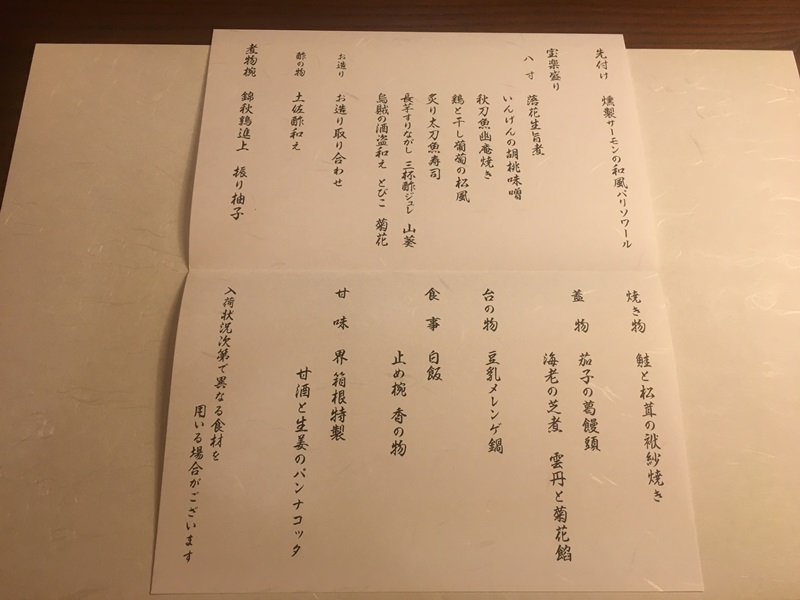 先付け　燻製サーモンの和風パリソワール
宝楽盛り
八寸　落花生旨煮
いんげんの胡桃味噌
秋刀魚幽庵焼き
鶏と干し葡萄の松風
炙り太刀魚寿司
長芋すりながし　三杯酢ジュレ　山葵
烏賊の酒盗和え　とびこ　菊花
お造り　お造り取り合わせ
酢の物　土佐酢和え
煮物椀　錦秋鶏進上　振り柚子
焼き物　鮭と松茸の袱紗焼き
蓋物　茄子の葛饅頭
海老の芝煮　雲丹と菊花餡
台の物　豆乳メレンゲ鍋
食事　白飯
止め椀　香の物
甘味　界箱根特製
甘酒と生姜のパンナコッタ
入荷状況次第で異なる食材を
用いる場合がございます